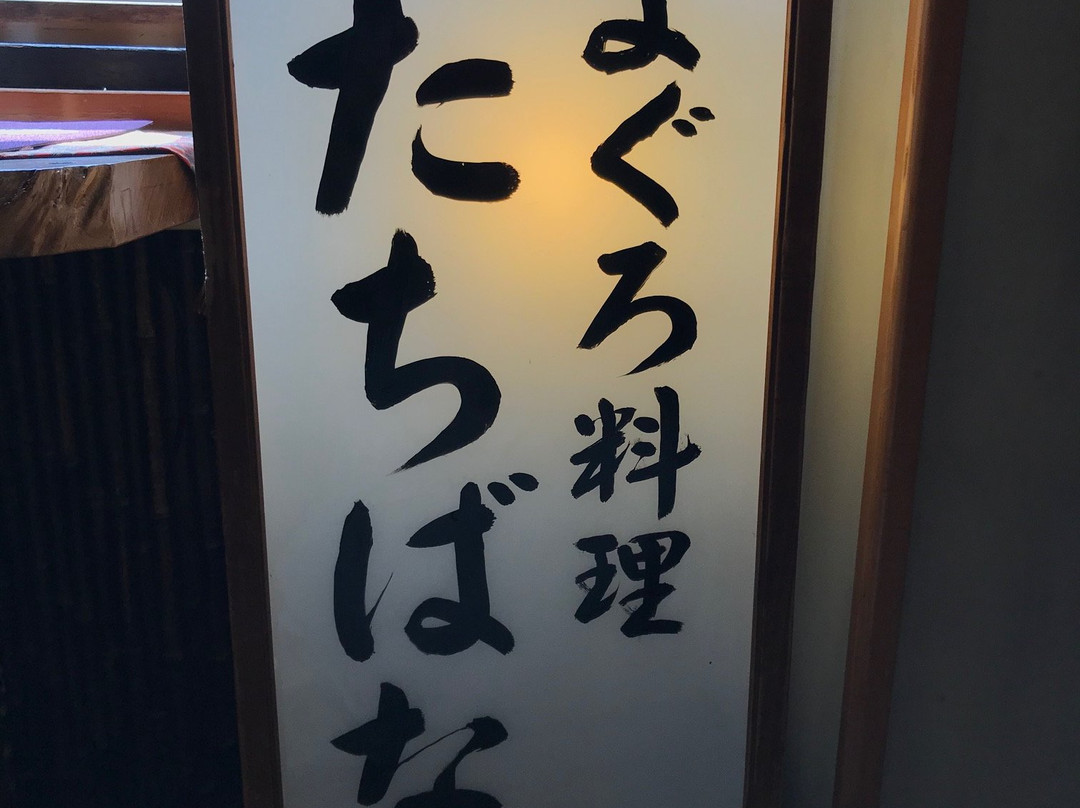 まぐろ料理
たちばな